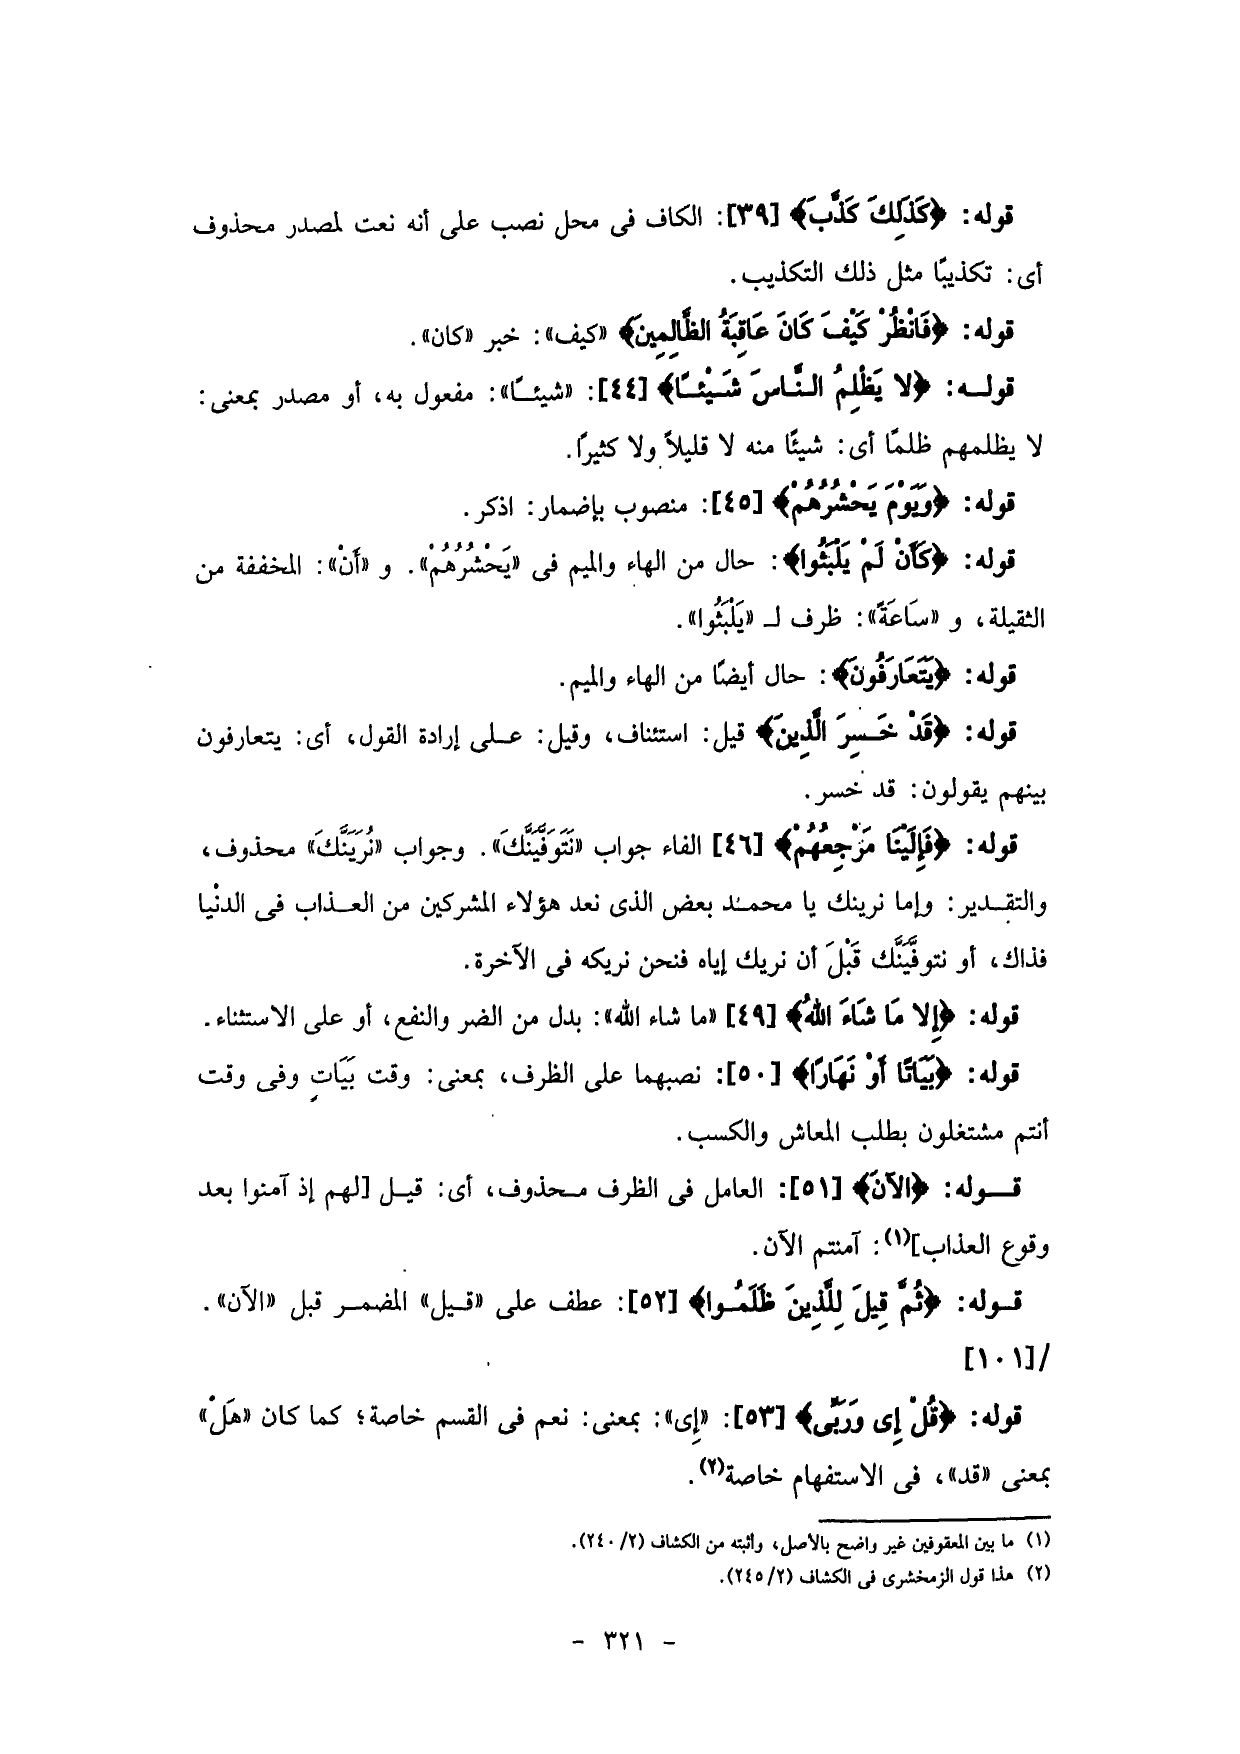 قوله: ﴿كَذَلِكَ كَذَّبَ﴾ [٣٩]: الكاف فى محل نصب على أنه نعت لمصدر محذوف
أى: تكذيبًا مثل ذلك التكذيب.
قوله: ﴿فَانْظُرْ كَيْفَ كَانَ عَاقِبَةُ الظَّالِمِينَ﴾ «كيف»: خبر «كان».
قولـه: ﴿لا يَظْلِمُ النَّاسَ شَيْئًا﴾ [٤٤]: «شيئًا»: مفعول به، أو مصدر بمعنى:
لا يظلمهم ظلمًا أى: شيئًا منه لا قليلاً ولا كثيرًا.
قوله: ﴿وَيَوْمَ يَحْشُرُهُمْ﴾ [٤٥]: منصوب بإضمار: اذكر.
قوله: ﴿كَأَنْ لَمْ يَلْبَثُوا﴾: حال من الهاء والميم فى «يَحْشُرُهُمْ». و «أَنْ»: المخففة من
الثقيلة، و «سَاعَةً»: ظرف لـ «يَلْبَثُوا».
قوله: ﴿يَتَعَارَفُونَ﴾: حال أيضًا من الهاء والميم.
قوله: ﴿قَدْ خَسِرَ الَّذِينَ﴾ قيل: استئناف، وقيل: على إرادة القول، أى: يتعارفون
بينهم يقولون: قد خسر.
قوله: ﴿فَإِلَيْنَا مَرْجِعُهُمْ﴾ [٤٦] الفاء جواب «نَتَوَفَّيَنَّكَ». وجواب «نُرِيَنَّكَ» محذوف،
والتقـدير: وإما نرينك يا محمـد بعض الذى نعد هؤلاء المشركين من العـذاب فى الدنْيا
فذاك، أو نتوفَّيَنَّك قَبْلَ أن نريك إياه فنحن نريكه فى الآخرة.
قوله: ﴿إِلا مَا شَاءَ اللهُ﴾ [٤٩] «ما شاء الله»: بدل من الضر والنفع، أو على الاستثناء.
قوله: ﴿بَيَاتًا أَوْ نَهَارًا﴾ [٥٠]: نصبهما على الظرف، بمعنى: وقت بَيَاتٍ وفى وقت
أنتم مشتغلون بطلب المعاش والكسب.
قـــوله: ﴿الآنَ﴾ [٥١]: العامل فى الظرف محذوف، أى: قيـل [لهم إذ آمنوا بعد
وقوع العذاب](١): آمنتم الآن.
قـوله: ﴿ثُمَّ قِيلَ لِلَّذِينَ ظَلَمُوا﴾ [٥٢]: عطف على «قـيل» المضمـر قبل «الآن».
/[١٠١]
قوله: ﴿قُلْ إِى وَرَبِّى﴾ [٥٣]: «إِى»: بمعنى: نعم فى القسم خاصة؛ كما كان «هَلْ»
بمعنى «قد»، فى الاستفهام خاصة(٢).
(١) ما بين المعقوفين غير واضح بالأصل، وأثبته من الكشاف (٢/٢٤٠).
(٢) هذا قول الزمخشرى فى الكشاف (٢/٢٤٥).
- ٣٢١ -